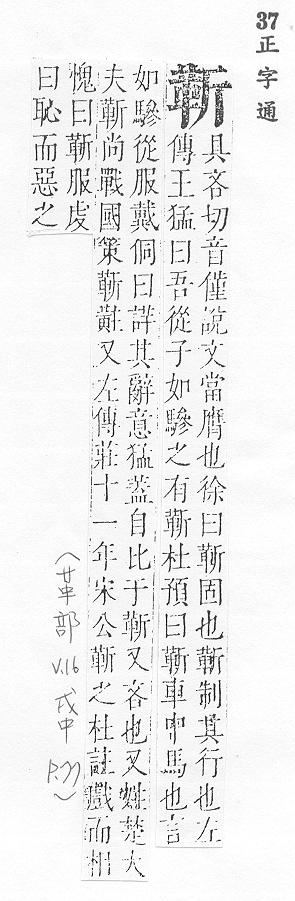 37正字通
靳
具吝切音僅說文當膺也徐曰靳固也靳制其行也左
傳王猛曰吾從子如驂之有靳杜預曰靳車中馬也言
如驂從服戴侗曰詳其辭意猛蓋自比于靳又吝也又姓楚大
夫靳尚戰國策靳黈又左傳莊十一年宋公靳之杜註戲而相
愧曰靳服虔
曰恥而惡之
(革部 V.16 戌中 P.77)